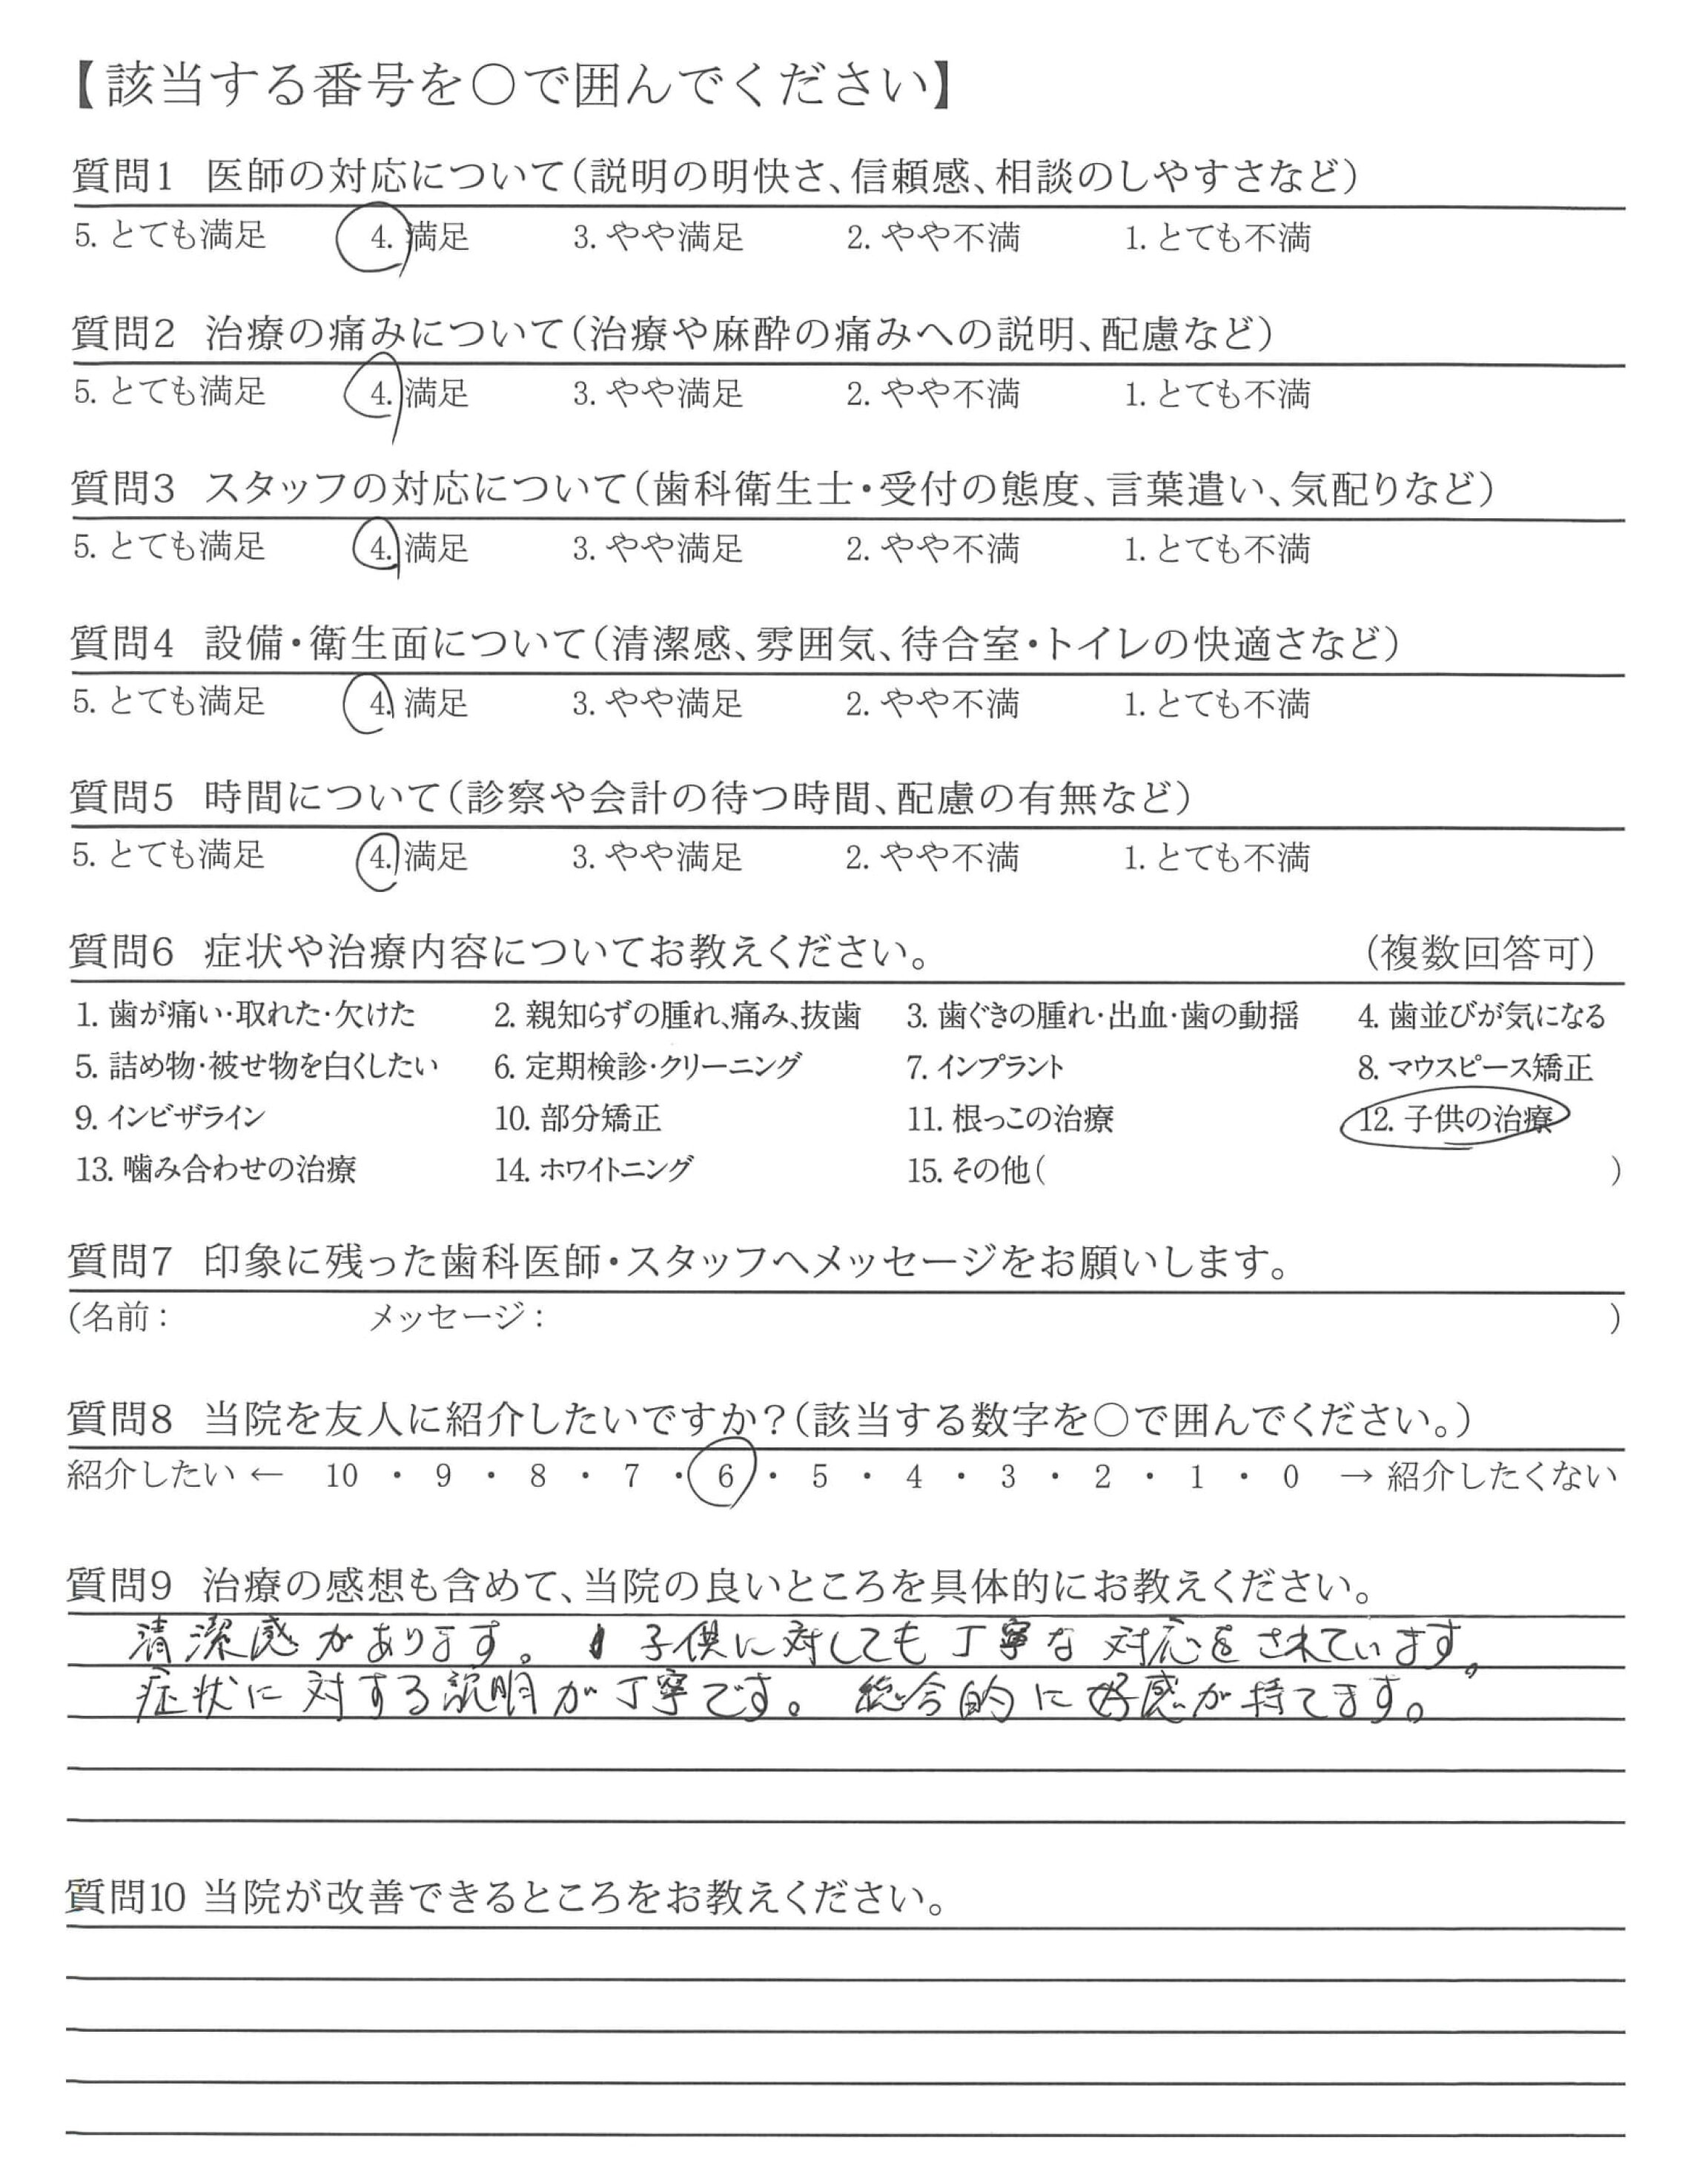 【該当する番号を○で囲んでください】
質問1 医師の対応について(説明の明快さ、信頼感、相談のしやすさなど)
5. とても満足 4. 満足 3. やや満足 2. やや不満 1. とても不満
質問2 治療の痛みについて(治療や麻酔の痛みへの説明、配慮など)
5. とても満足 4. 満足 3. やや満足 2. やや不満 1. とても不満
質問3 スタッフの対応について(歯科衛生士・受付の態度、言葉遣い、気配りなど)
5. とても満足 4. 満足 3. やや満足 2. やや不満 1. とても不満
質問4 設備・衛生面について(清潔感、雰囲気、待合室・トイレの快適さなど)
5. とても満足 4. 満足 3. やや満足 2. やや不満 1. とても不満
質問5 時間について(診察や会計の待つ時間、配慮の有無など)
5. とても満足 4. 満足 3. やや満足 2. やや不満 1. とても不満
質問6 症状や治療内容についてお教えください。 (複数回答可)
1. 歯が痛い・取れた・欠けた 2. 親知らずの腫れ、痛み、抜歯 3. 歯ぐきの腫れ・出血・歯の動揺 4. 歯並びが気になる
5. 詰め物・被せ物を白くしたい 6. 定期検診・クリーニング 7. インプラント 8. マウスピース矯正
9. インビザライン 10. 部分矯正 11. 根っこの治療 12. 子供の治療
13. 噛み合わせの治療 14. ホワイトニング 15. その他( )
質問7 印象に残った歯科医師・スタッフへメッセージをお願いします。
(名前: メッセージ: )
質問8 当院を友人に紹介したいですか?(該当する数字を○で囲んでください。)
紹介したい ← 10 ・ 9 ・ 8 ・ 7 ・ 6 ・ 5 ・ 4 ・ 3 ・ 2 ・ 1 ・ 0 → 紹介したくない
質問9 治療の感想も含めて、当院の良いところを具体的にお教えください。
清潔感があります。子供に対しても丁寧な対応をされています。
症状に対する説明が丁寧です。総合的に好感が持てます。
質問10 当院が改善できるところをお教えください。